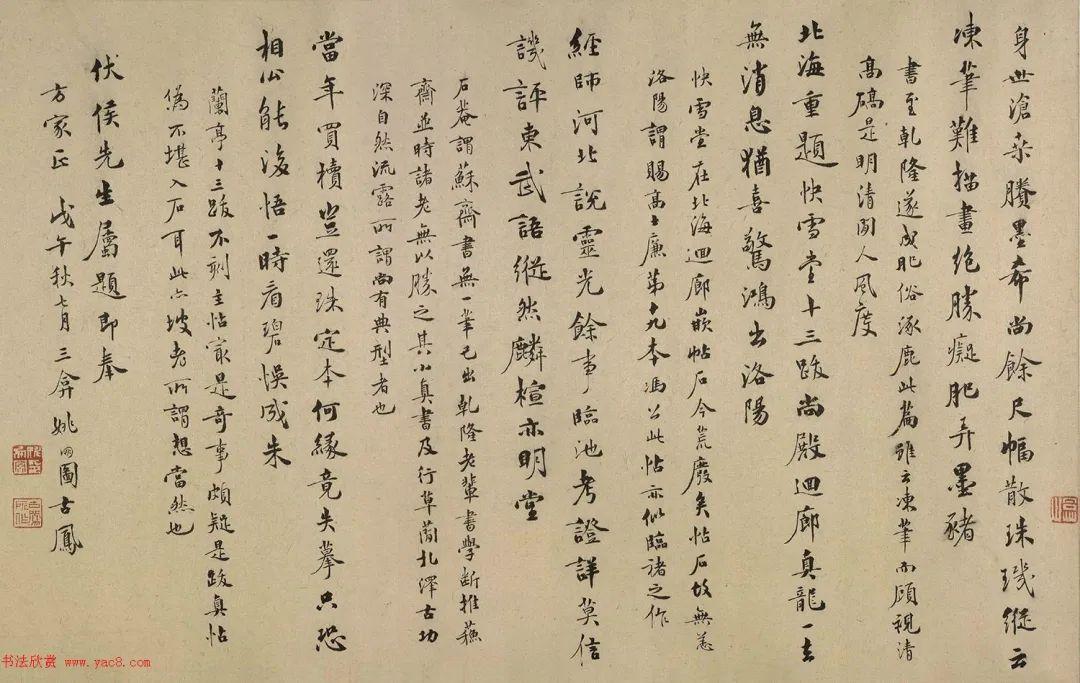 身世滄桑賸墨希尚餘尺幅散珠璣縱云
凍筆難描畫絶勝癡肥弄墨豬
書至乾隆遂成肥俗涿鹿此篇雖云凍筆而顧視清
高礄是明清間人風度
北海重題快雪堂十三跋尚殿迴廊奐龍一去
無消息猶喜驚鴻出洛陽
快雪堂在北海迴廊嵌帖石今荒廢矣帖石故無恙
洛陽謂賜高士廉第九本馮公此帖亦似臨褚之作
經師河北說靈光餘事臨池考證詳莫信
譏評東武語縱然麟楦亦明堂
石菴謂蘇齋書無一筆己出乾隆老輩書學斷推蘇
齋並時諸老無以勝之其小真書及行草蘭札澤古功
深自然流露所謂尚有典型者也
當年買櫝豈還珠定本何緣竟失摹只恐
相公能後悟一時看碧悞成朱
蘭亭十三跋不刻主帖寔是奇事頗疑是跋真帖
偽不堪入石耳此亦坡老所謂想當然也
伏侯先生屬題即奉
方家正 戊午秋七月三弇姚 圖古鳳
书法欣赏 www.yac8.com